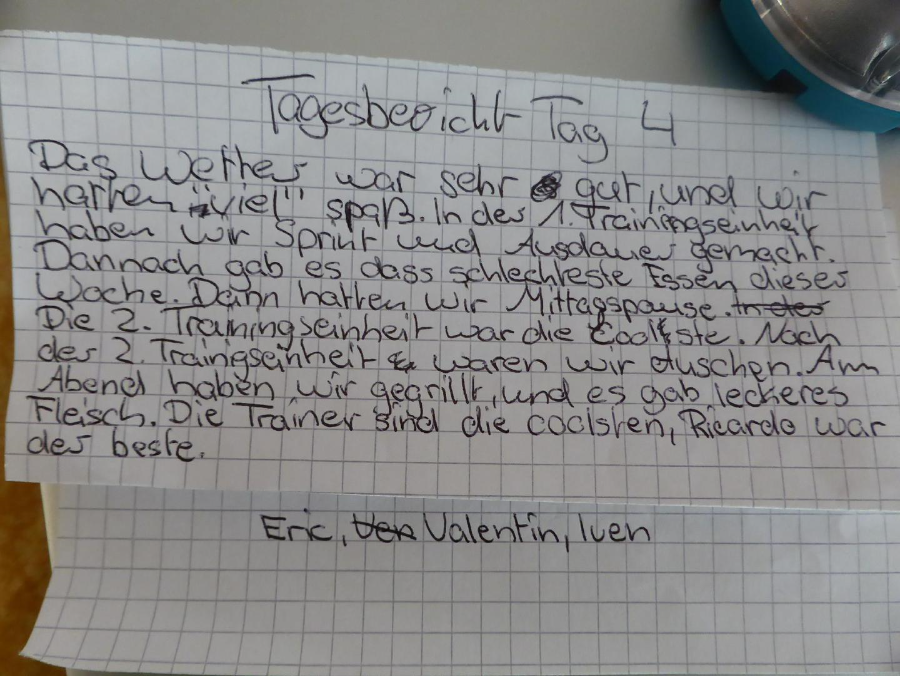 Tagesbericht Tag 4
Das Wetter war sehr gut, und wir
hatten "viel" spaß. In der 1. Trainingseinheit
haben wir Sprint und Ausdauer gemacht.
Dannach gab es dass schlechteste Essen dieser
Woche. Dann hatten wir Mittagspause. In der
Die 2. Trainingseinheit war die Coolste. Nach
der 2. Trainigseinheit waren wir duschen. Am
Abend haben wir gegrillt, und es gab leckeres
Fleisch. Die Trainer sind die coolsten, Ricardo war
der beste.
Eric, Valentin, Iven